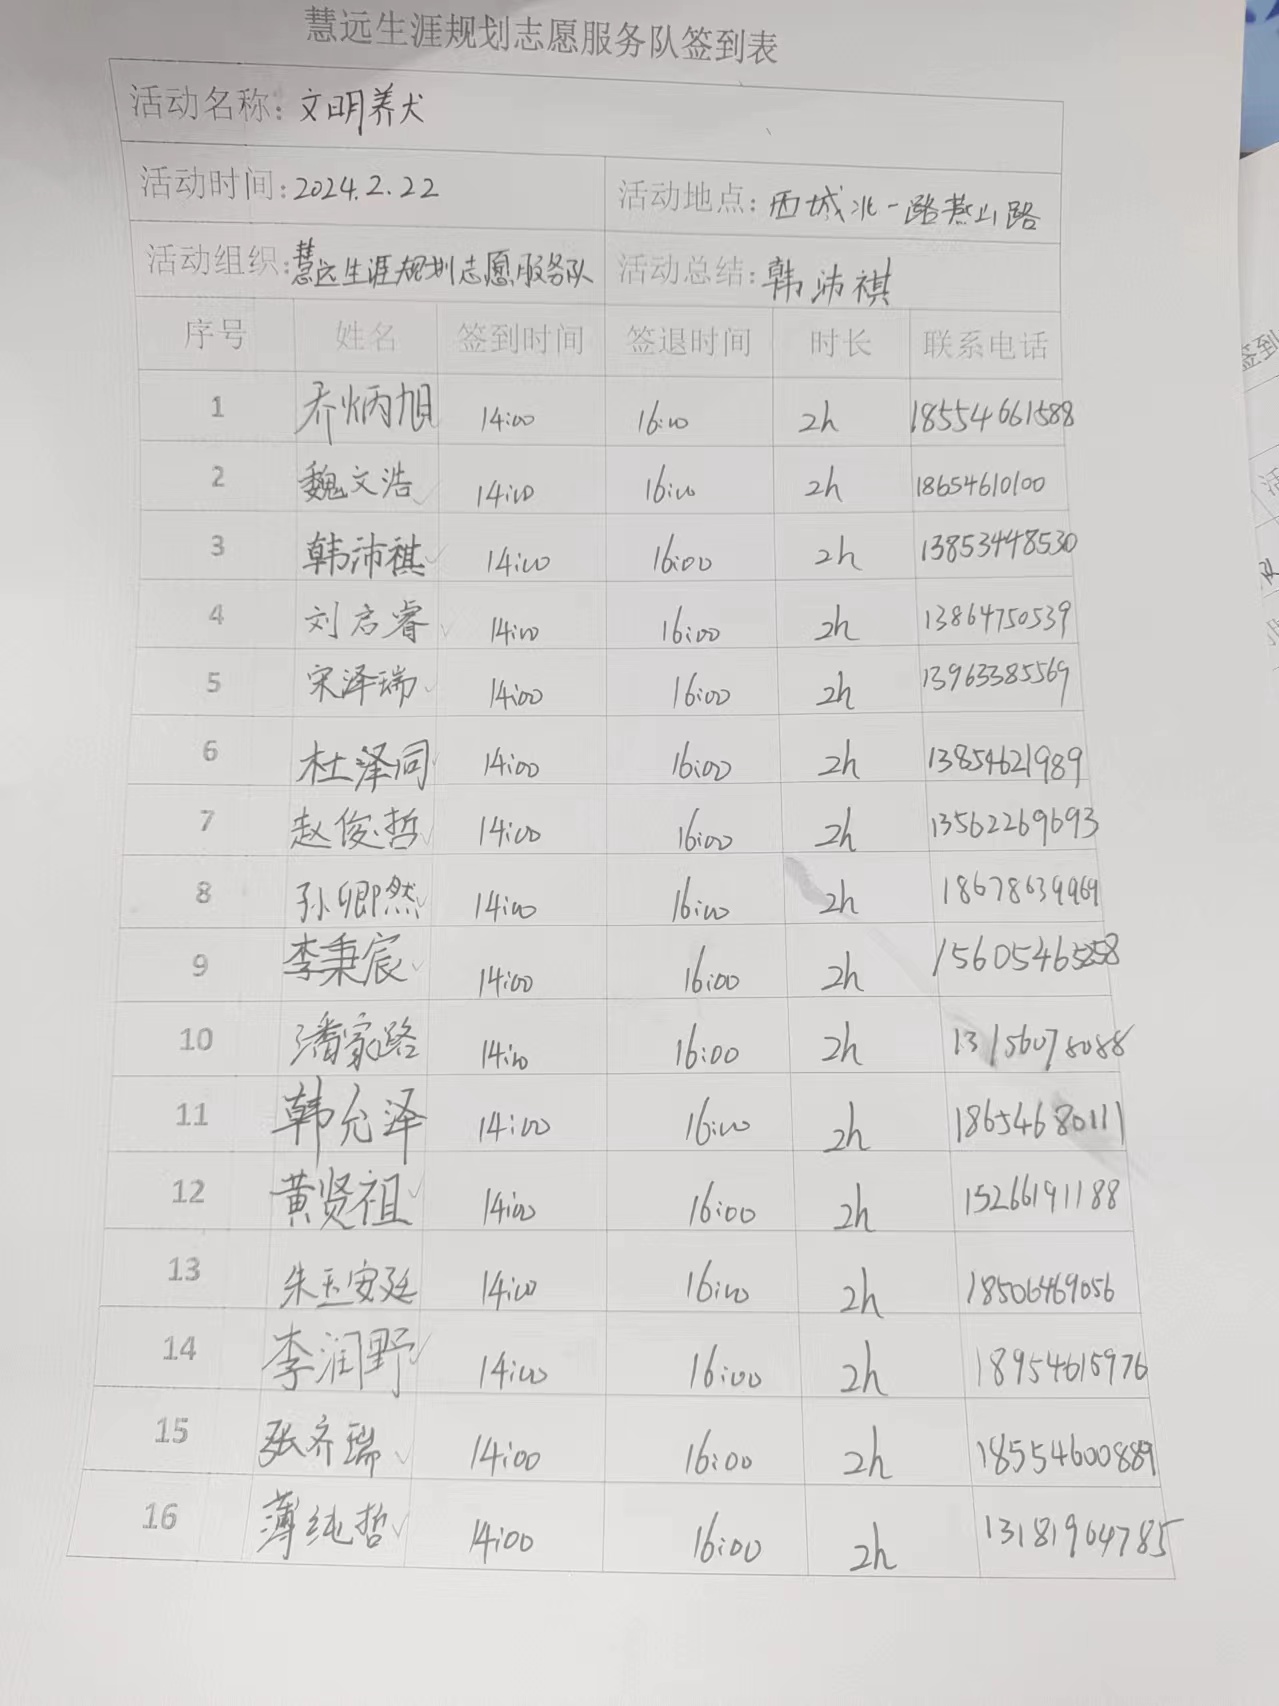 慧远生涯规划志愿服务队签到表
活动名称：文明养犬
活动时间：2024.2.22 活动地点：西城北一路燕山路
活动组织：慧远生涯规划志愿服务队 活动总结：韩沛祺
序号 姓名 签到时间 签退时间 时长 联系电话
1 乔炳旭 14:00 16:00 2h 18554661588
2 魏文浩 14:00 16:00 2h 18654610100
3 韩沛祺 14:00 16:00 2h 13853448530
4 刘启睿 14:00 16:00 2h 13864750539
5 宋泽瑞 14:00 16:00 2h 13963385569
6 杜泽同 14:00 16:00 2h 13854621989
7 赵俊哲 14:00 16:00 2h 13562269693
8 孙卿然 14:00 16:00 2h 18678639969
9 李秉宸 14:00 16:00 2h
10 潘家路 14:00 16:00 2h 13156078088
11 韩允泽 14:00 16:00 2h 18654680111
12 黄贤祖 14:00 16:00 2h 15266191188
13 朱玉安廷 14:00 16:00 2h 18506469056
14 李润野 14:00 16:00 2h 18954615976
15 张齐瑞 14:00 16:00 2h 18554600889
16 薄纯哲 14:00 16:00 2h 13181964785
签到